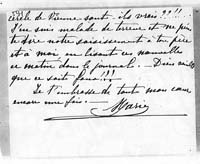 de Vienne sont-ils vrais??!!
J'en suis malade de terreur et ne puis
te dire notre saisissement à ton père
et à moi en lisant ces nouvelles
ce matin dans le journal. - Dieu veuille
que ce soit faux!!!
Je t'embrasse de tout mon cœur
encore une fois.
Marie